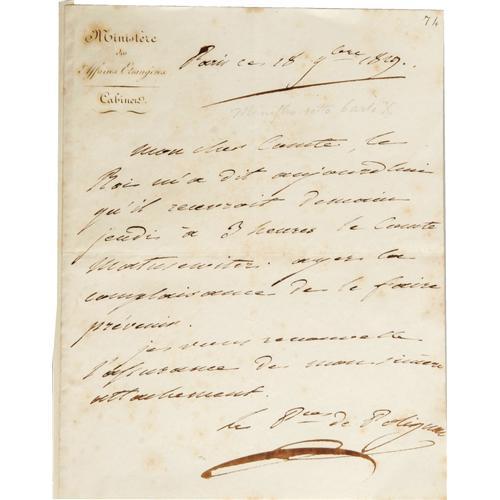 74
Ministère
des
Affaires Étrangères
Cabinet
Paris ce 18 9bre 1829.
mon cher Comte, le
Roi m'a dit aujourdhui
qu'il recevroit demain
jeudi à 3 heures le Comte
Matusewitz. ayez la
complaisance de le faire
prévenir.
je vous renouvelle
l'assurance de mon sincère
attachement.
le Pce de Polignac